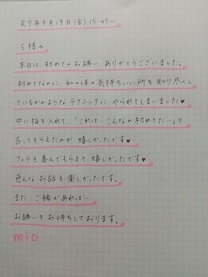 R7年9月19日(金) 15:45〜
S様へ
本日は初めてのお誘いありがとうございました。
初めてなのに、私の体の気持ちいい所を知り尽くして
いるかのようなテクニックに やられてしまいました♥
中に指を入れて、「これは…こんなの初めてだ…」と
言ってもらえたのが嬉しかったです♥
フェラも喜んでもらえて、嬉しかったです♥
色んなお話も楽しかったです。
また ご縁があれば…
お誘いをお待ちしております。
mio